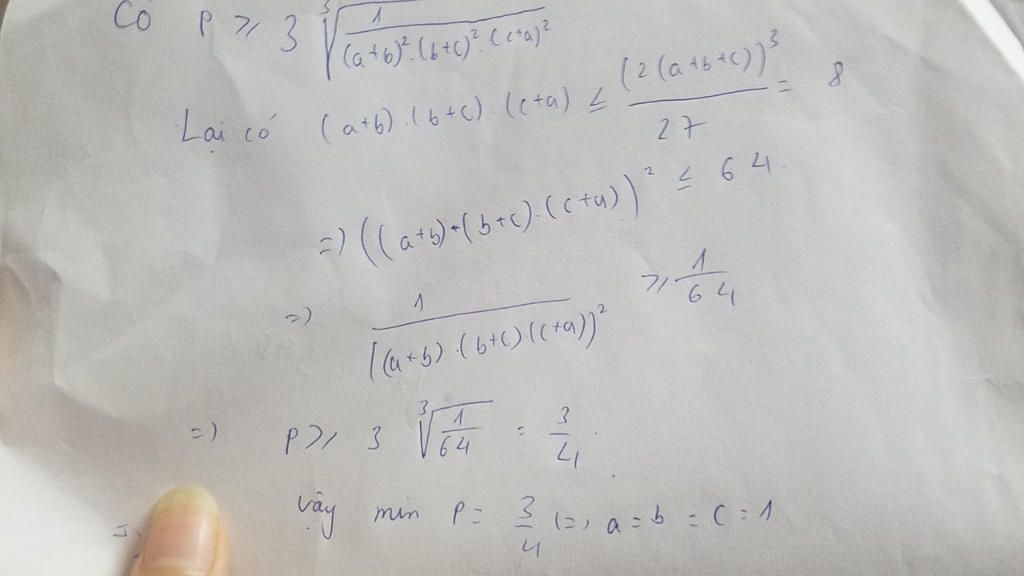 Có P ≥ 3 ∛(1/((a+b)².(b+c)².(c+a)²))
Lại có (a+b).(b+c).(c+a) ≤ (2(a+b+c))³/27 = 8
=) ((a+b).(b+c).(c+a))² ≤ 64.
=) 1/((a+b).(b+c)(c+a))² ≥ 1/64
=) P ≥ 3 ∛(1/64) = 3/4.
Vậy min P = 3/4 (=) a = b = c = 1
=)